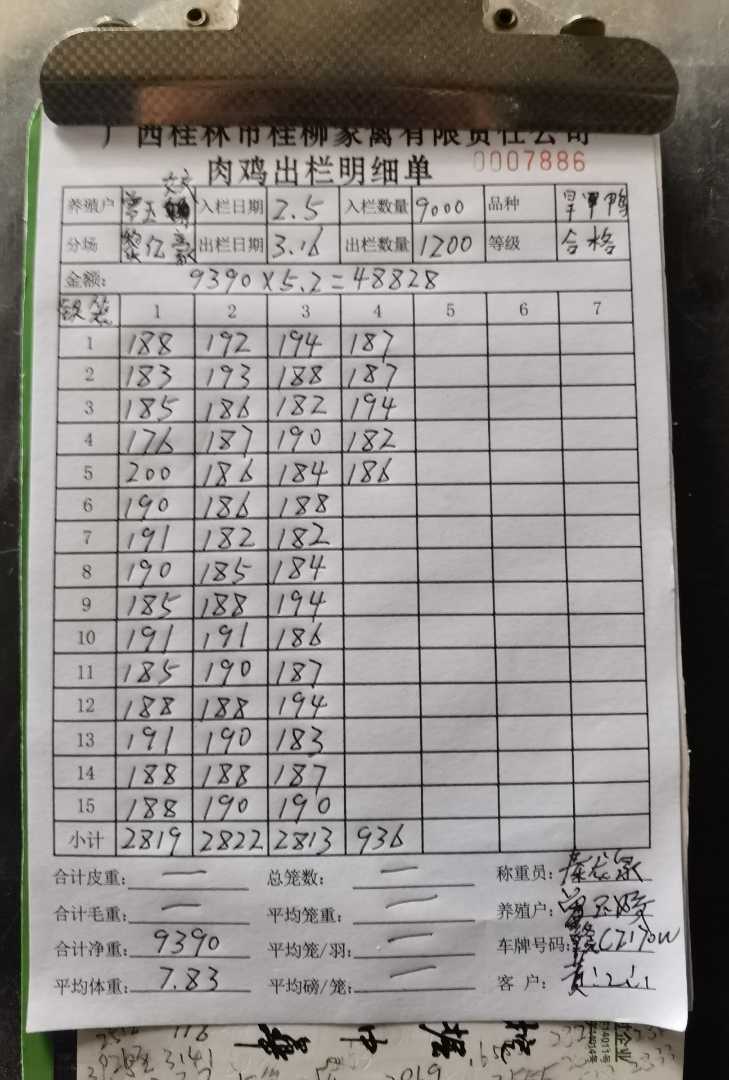 广西桂林市桂柳家禽有限责任公司
肉鸡出栏明细单 0007886
养殖户 入栏日期 2.5 入栏数量 9000 品种 旱鸭
分场 黎亿豪 出栏日期 3.16 出栏数量 1200 等级 合格
金额: 9390×5.2=48828
1 2 3 4 5 6 7
1 188 192 194 187
2 183 193 188 187
3 185 186 182 194
4 176 187 190 182
5 200 186 184 186
6 190 186 188
7 191 182 182
8 190 185 184
9 185 188 194
10 191 191 186
11 185 190 187
12 188 188 194
13 191 190 183
14 188 188 187
15 188 190 190
小计 2819 2822 2813 936
合计皮重: 一 总笼数: 一 称重员:
合计毛重: 一 平均笼重: 一 养殖户:
合计净重: 9390 平均笼/羽: 一 车牌号码:
平均体重: 7.83 平均磅/笼: 一 客户: